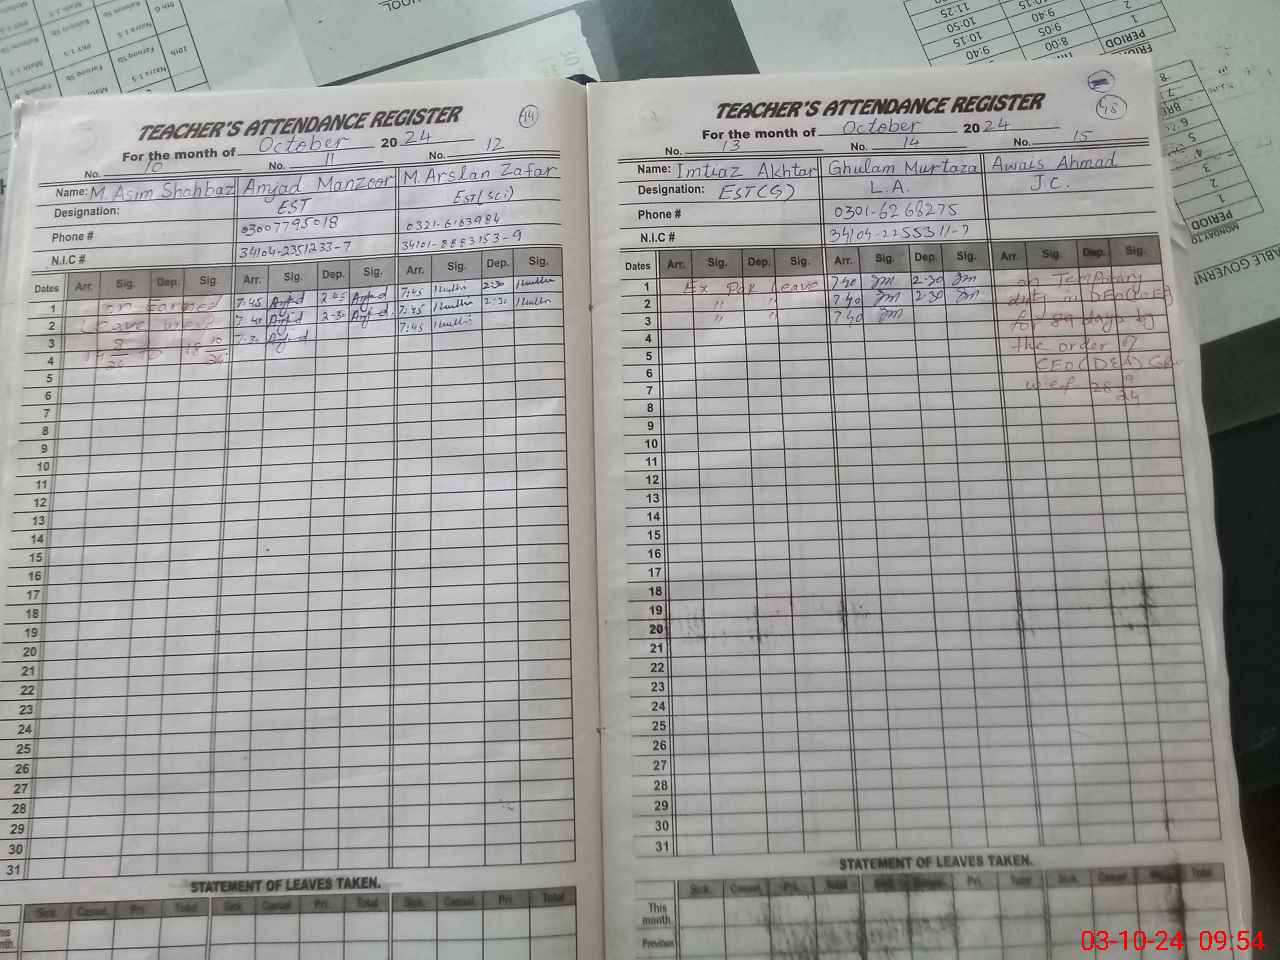 TEACHER'S ATTENDANCE REGISTER
14
For the month of October 2024
No. 10 No. 11 No. 12
Name: M. Asim Shahbaz Amjad Manzoor M. Arslan Zafar
Designation: EST EST(SCI)
Phone # 03007795018 0321-6163984
N.I.C # 34104-2351233-7 34101-8883153-9
Dates Arr. Sig. Dep. Sig. Arr. Sig. Dep. Sig. Arr. Sig. Dep. Sig.
1 on Earned 7:45 Amjd 2:45 Amjd 7:45 2:30
2 Leave w.e.f 7:40 Amjd 2:30 Amjd 7:45 2:30
3 7:30 Amjd 7:45
4
5
6
7
8
9
10
11
12
13
14
15
16
17
18
19
20
21
22
23
24
25
26
27
28
29
30
31
STATEMENT OF LEAVES TAKEN.
Sick. Casual. Pri. Total Sick. Casual. Pri. Total Sick. Casual. Pri. Total
TEACHER'S ATTENDANCE REGISTER
48
For the month of October 2024
No. 13 No. 14 No. 15
Name: Imtiaz Akhtar Ghulam Murtaza Awais Ahmad
Designation: EST(G) L.A. J.C.
Phone # 0301-6268275
N.I.C # 34104-2255311-7
Dates Arr. Sig. Dep. Sig. Arr. Sig. Dep. Sig. Arr. Sig. Dep. Sig.
1 Ex Pak Leave 7 40 gm 2-30 gm on Temporary
2 " " 7 40 gm 2-30 gm duty in DEO
3 " " 7 40 gm for 89 days by
4 the order of
5 CEO(DEA)
6 w.e.f 28 9
7 24
8
9
10
11
12
13
14
15
16
17
18
19
20
21
22
23
24
25
26
27
28
29
30
31
STATEMENT OF LEAVES TAKEN.
Sick. Casual. Pri. Total Pri. Total Sick. Casual. Total
This month.
Previous
03-10-24 09:54